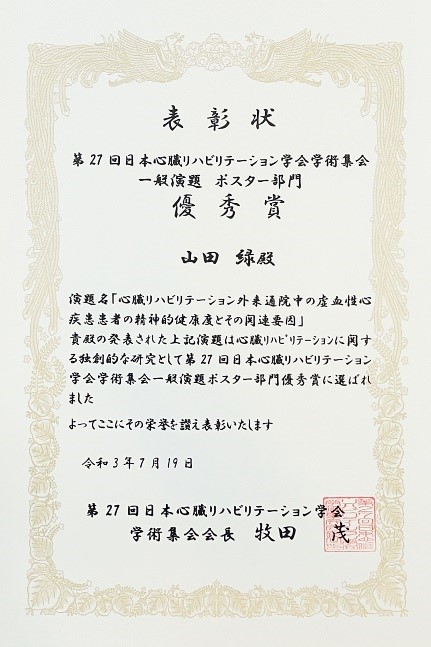 表彰状
第27回日本心臓リハビリテーション学会学術集会
一般演題 ポスター部門
優秀賞
山田 緑殿
演題名「心臓リハビリテーション外来通院中の虚血性心
疾患患者の精神的健康度とその関連要因」
貴殿の発表された上記演題は心臓リハビリテーションに関す
る独創的な研究として第27回日本心臓リハビリテーション
学会学術集会一般演題ポスター部門優秀賞に選ばれ
ました
よってここにその栄誉を讃え表彰いたします
令和3年7月19日
第27回日本心臓リハビリテーション学会
学術集会会長 牧田 茂